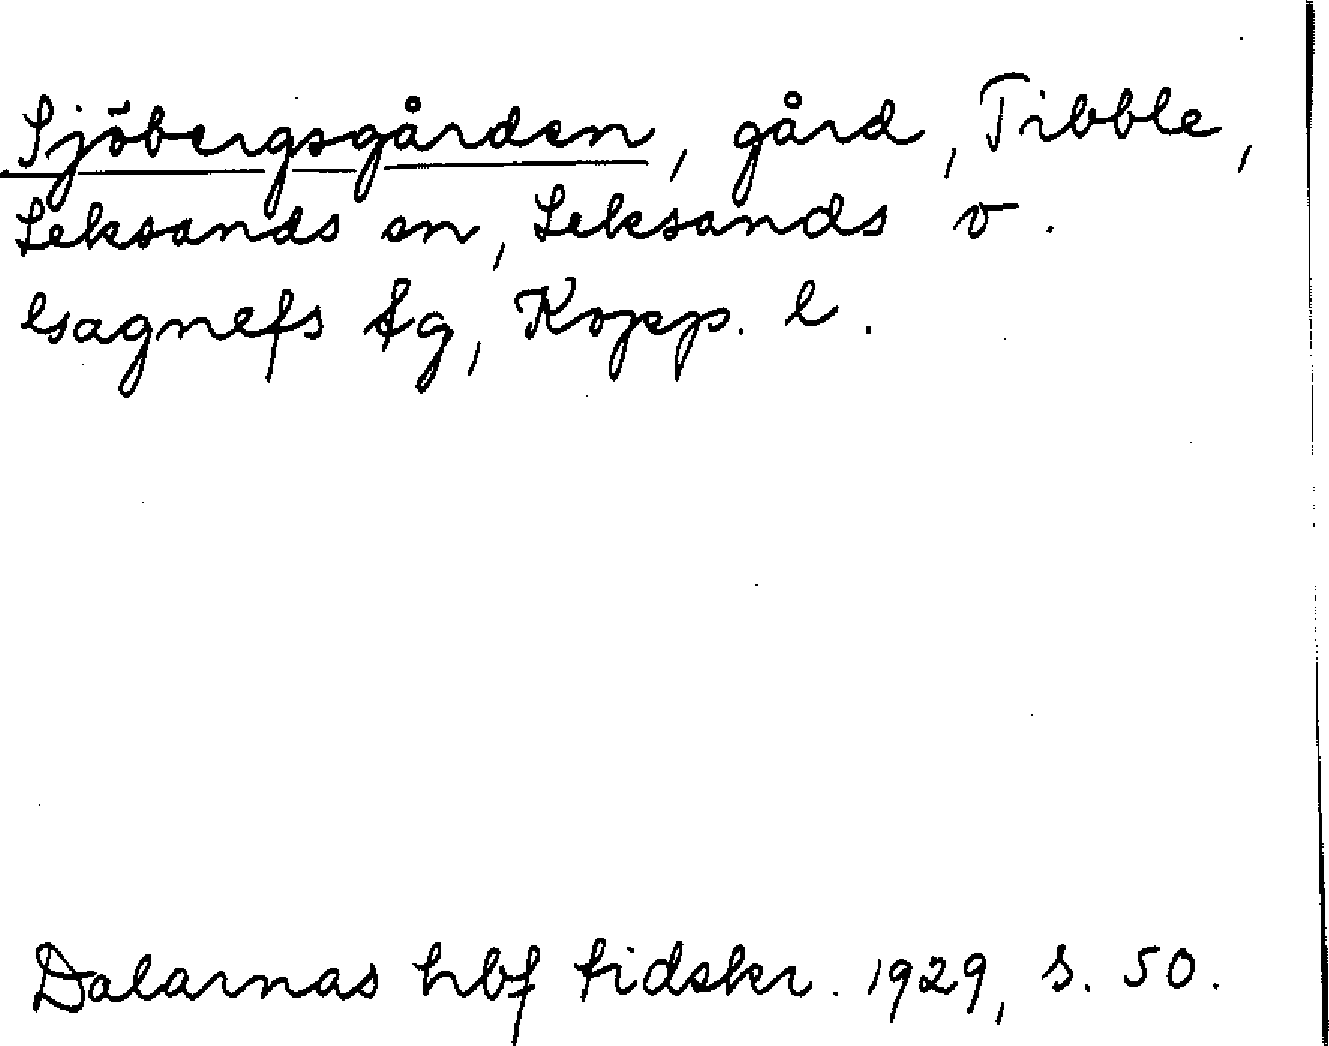 Sjöbergsgården, gård, Tibble,
Leksands sn, Leksands o.
Gagnefs tg, Kopp. l.
Dalarnas hbf tidskr. 1929, s. 50.